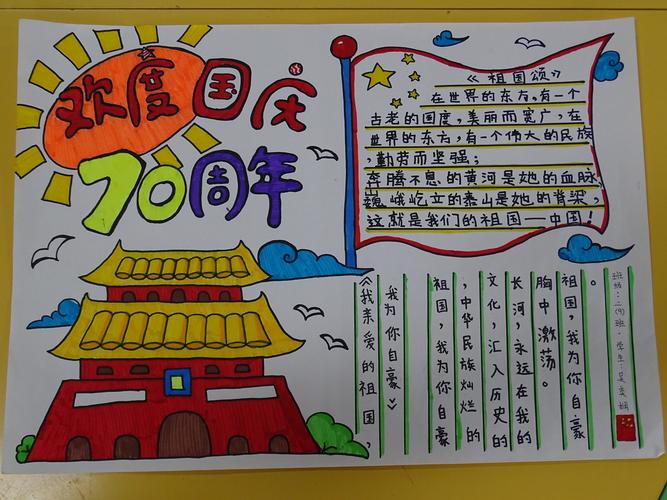 欢度国庆
70周年
《祖国颂》
在世界的东方,有一个
古老的国度,美丽而宽广,在
世界的东方,有一个伟大的民族
,勤劳而坚强;
奔腾不息的黄河是她的血脉,
巍峨屹立的泰山是她的脊梁,
这就是我们的祖国——中国!
《我亲爱的祖国,
我为你自豪》
祖国,我为你自豪
,中华民族灿烂的
文化,汇入历史的
长河,永远在我的
胸中激荡。
祖国,我为你自豪
。
班级:二(9)班.学生:吴